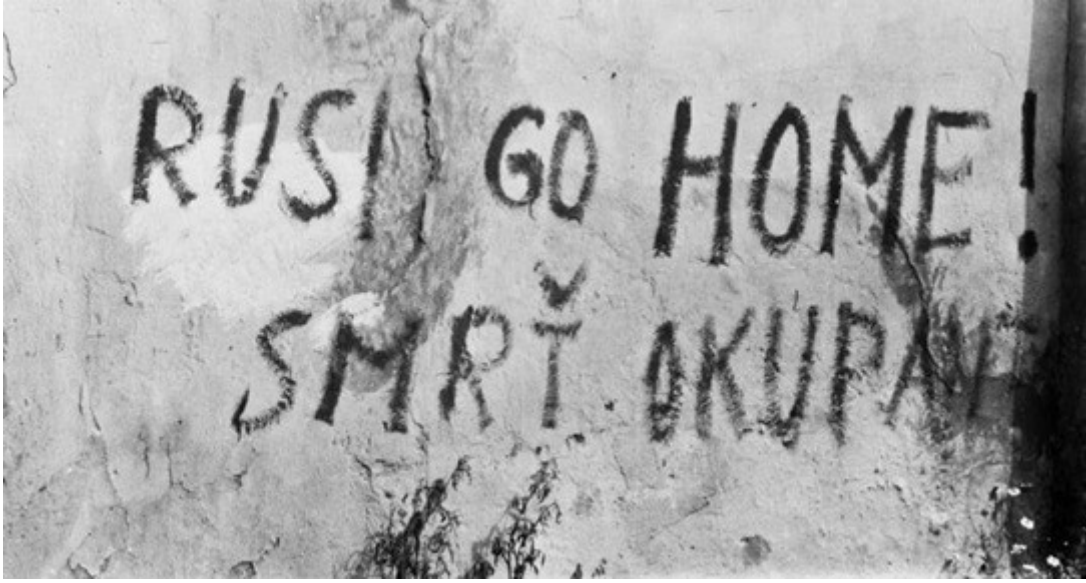 RUSI GO HOME!
SMRŤ OKUPANT